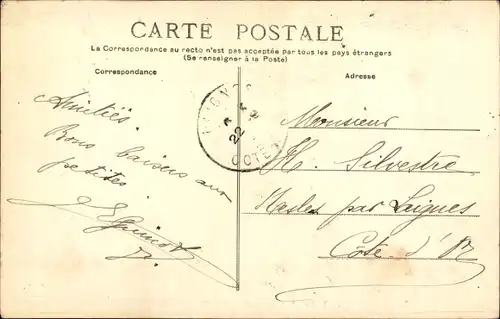 CARTE POSTALE
La Correspondance au recto n'est pas acceptée par tous les pays étrangers
(Se renseigner à la Poste)
Correspondance
Adresse
Amitiés.
Bons baisers aux
petites
Monsieur
H. Silvestre
Nesles par Laignes
Côte d'Or
22